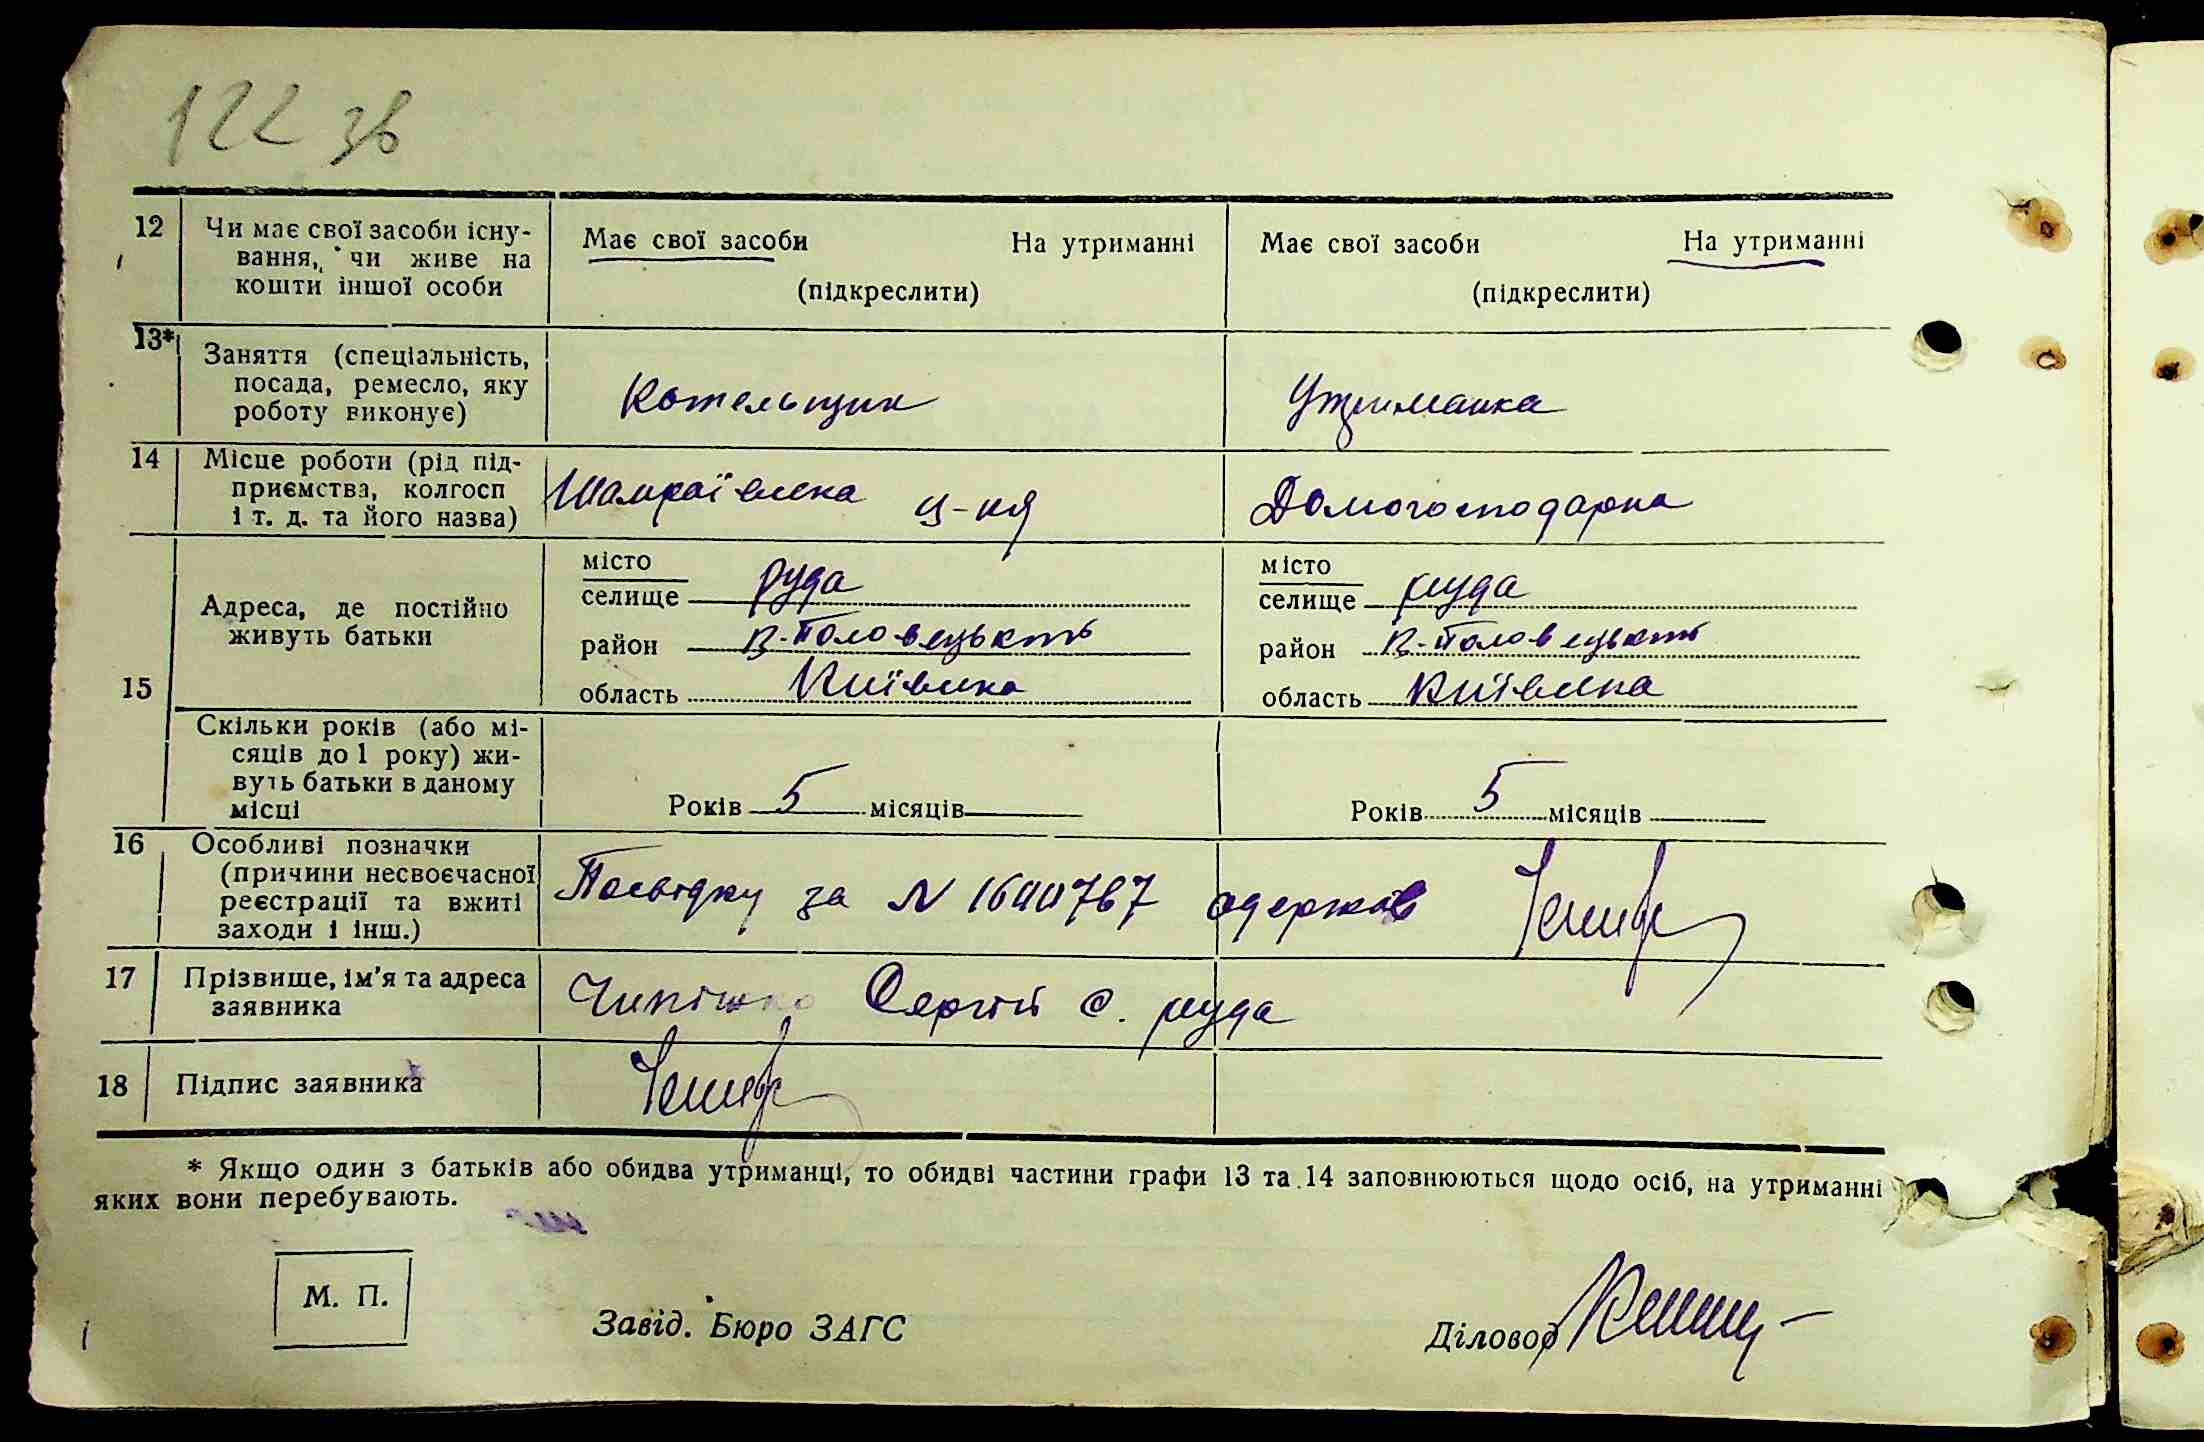 122 зв
12 Чи має свої засоби існу-
вання, чи живе на
кошти іншої особи
Має свої засоби На утриманні
(підкреслити)
Має свої засоби На утриманні
(підкреслити)
13* Заняття (спеціальність,
посада, ремесло, яку
роботу виконує)
Котельщик
Утриманка
14 Місце роботи (рід під-
приємства, колгосп
і т. д. та його назва)
Шамраївська ц-ня
Домогосподарка
15 Адреса, де постійно
живуть батьки
місто
селище Руда
район В-Половецький
область Київська
місто
селище Руда
район В-Половецький
область Київська
Скільки років (або мі-
сяців до 1 року) жи-
вуть батьки в даному
місці
Років 5 місяців
Років 5 місяців
16 Особливі позначки
(причини несвоєчасної
реєстрації та вжиті
заходи і інш.)
Посвідку за N одержав
17 Прізвище, ім'я та адреса
заявника
Сергій с. Руда
18 Підпис заявника
* Якщо один з батьків або обидва утриманці, то обидві частини графи 13 та 14 заповнюються щодо осіб, на утриманні
яких вони перебувають.
М. П.
Завід. Бюро ЗАГС
Діловод